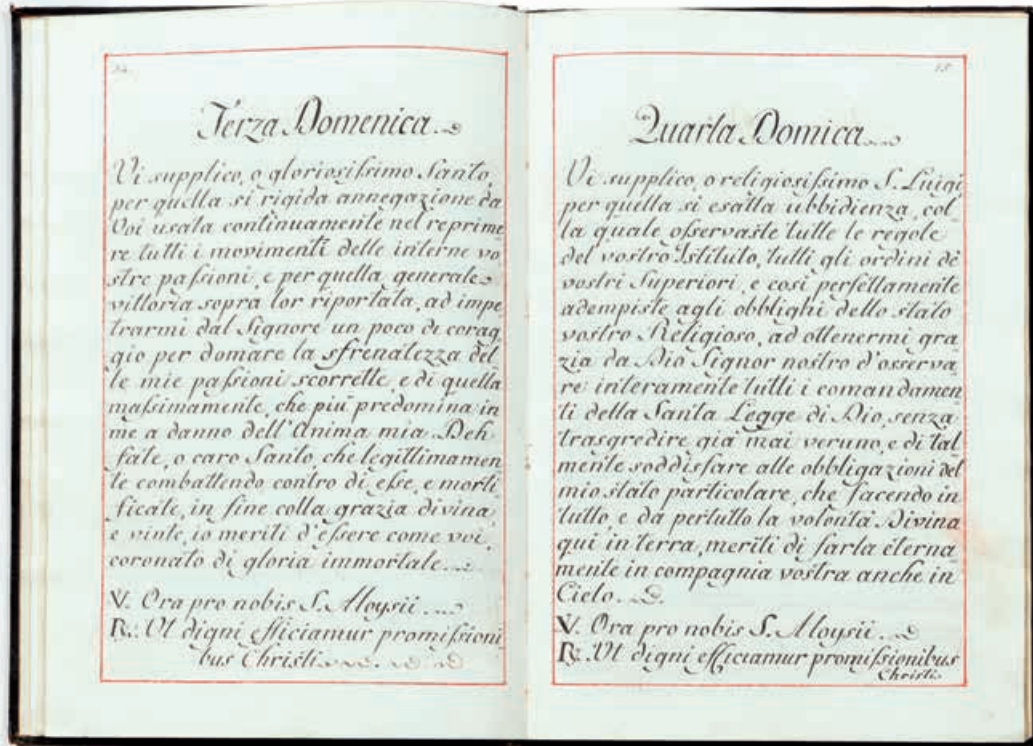 14
Terza Domenica.
Vi supplico, o gloriosissimo Santo,
per quella sì rigida annegazione da
Voi usata continuamente nel reprime
re tutti i movimenti delle interne vo
stre passioni, e per quella generale
vittoria sopra lor riportata, ad impe
trarmi dal Signore un poco di corag
gio per domare la sfrenatezza del
le mie passioni scorrette, e di quella
massimamente, che più predomina in
me a danno dell'Anima mia. Deh
fate, o caro Santo, che legittimamen
te combattendo contro di esse, e morti
ficate, in fine colla grazia divina
e vinte, io meriti d'essere come voi,
coronato di gloria immortale.
V. Ora pro nobis S. Aloysii.
R.: Ut digni efficiamur promissioni
bus Christi.
15
Quarta Domica.
Vi supplico, o religiosissimo S. Luigi
per quella sì esatta ubbidienza, col
la quale osservaste tutte le regole
del vostro Istituto, tutti gli ordini de'
vostri Superiori, e così perfettamente
adempiste agli obblighi dello stato
vostro Religioso, ad ottenermi gra
zia da Dio Signor nostro d'osserva
re interamente tutti i comandamen
ti della Santa Legge di Dio, senza
trasgredire già mai veruno, e di tal
mente soddisfare alle obbligazioni del
mio stato particolare, che facendo in
tutto, e da pertutto la volontà Divina
qui in terra, meriti di farla eterna
mente in compagnia vostra anche in
Cielo.
V. Ora pro nobis S. Aloysii.
R. Ut digni efficiamur promissionibus
Christi.